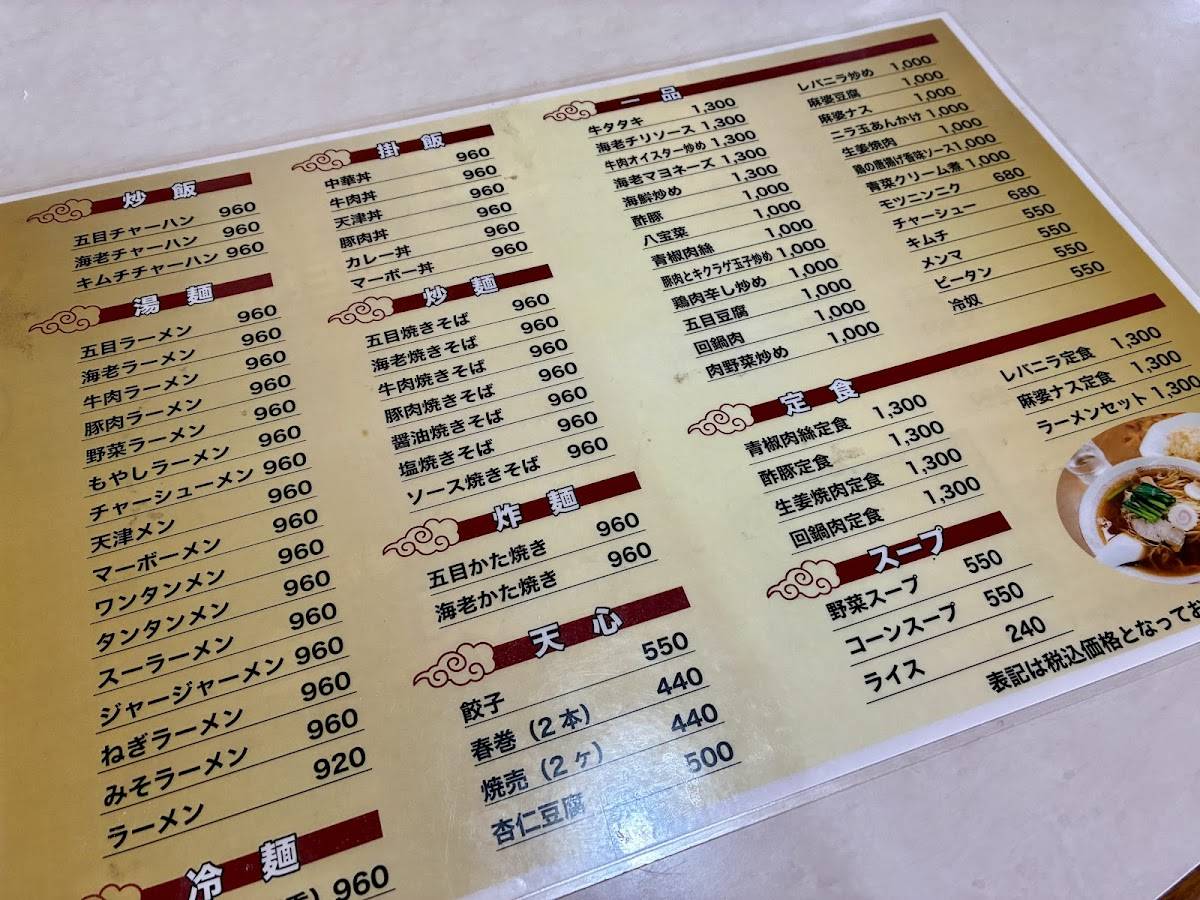 炒飯
五目チャーハン 960
海老チャーハン 960
キムチチャーハン 960
湯麺
五目ラーメン 960
海老ラーメン 960
牛肉ラーメン 960
豚肉ラーメン 960
野菜ラーメン 960
もやしラーメン 960
チャーシューメン 960
天津メン 960
マーボーメン 960
ワンタンメン 960
タンタンメン 960
スーラーメン 960
ジャージャーメン 960
ねぎラーメン 960
みそラーメン 960
ラーメン 920
冷麺
960
掛飯
中華丼 960
牛肉丼 960
天津丼 960
豚肉丼 960
カレー丼 960
マーボー丼 960
炒麺
五目焼きそば 960
海老焼きそば 960
牛肉焼きそば 960
豚肉焼きそば 960
醤油焼きそば 960
塩焼きそば 960
ソース焼きそば 960
炸麺
五目かた焼き 960
海老かた焼き 960
天心
餃子 550
春巻（2本） 440
焼売（2ヶ） 440
杏仁豆腐 500
一品
牛タタキ 1,300
海老チリソース 1,300
牛肉オイスター炒め 1,300
海老マヨネーズ 1,300
海鮮炒め 1,300
酢豚 1,000
八宝菜 1,000
青椒肉絲 1,000
豚肉とキクラゲ玉子炒め 1,000
鶏肉辛し炒め 1,000
五目豆腐 1,000
回鍋肉 1,000
肉野菜炒め 1,000
レバニラ炒め 1,000
麻婆豆腐 1,000
麻婆ナス 1,000
ニラ玉あんかけ 1,000
生姜焼肉 1,000
鶏の唐揚げ香味ソース 1,000
青菜クリーム煮 1,000
モツニンニク 680
チャーシュー 680
キムチ 550
メンマ 550
ピータン 550
冷奴 550
定食
青椒肉絲定食 1,300
酢豚定食 1,300
生姜焼肉定食 1,300
回鍋肉定食 1,300
レバニラ定食 1,300
麻婆ナス定食 1,300
ラーメンセット 1,300
スープ
野菜スープ 550
コーンスープ 550
ライス 240
表記は税込価格となってお